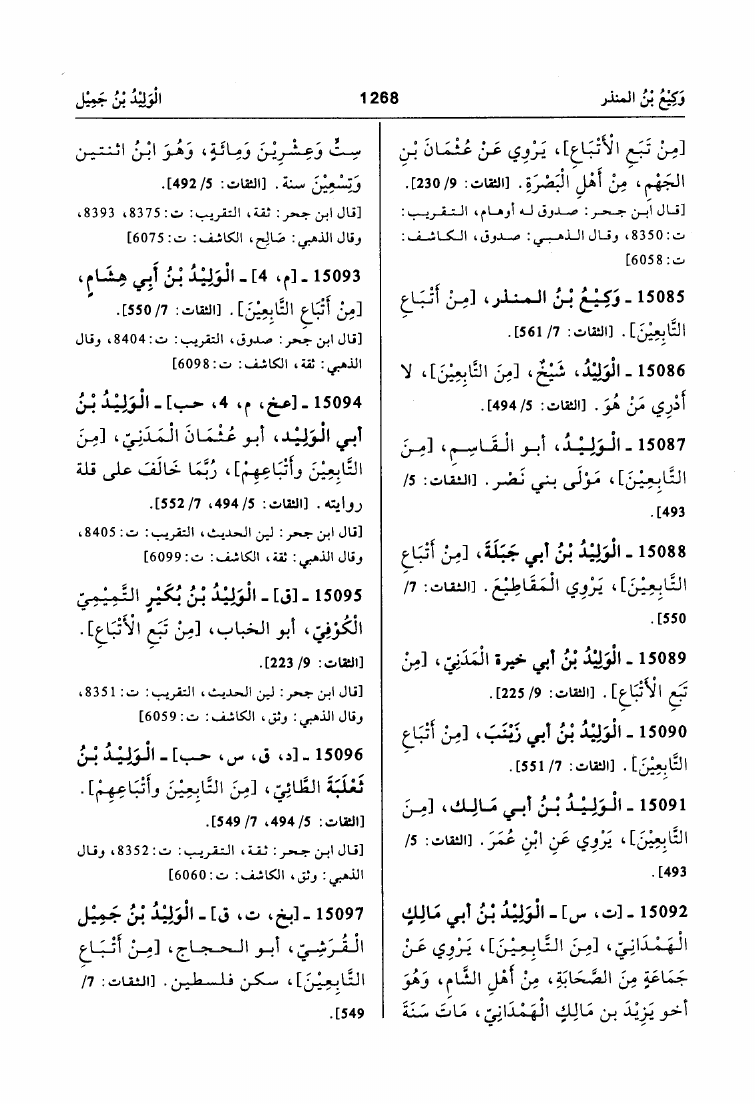 وَكِيْعُ بْنُ المنذر
1268
الْوَلِيْدُ بْنُ جَمِيْل
[مِنْ تَبَعِ الأَتْبَاعِ]، يَرْوِي عَنْ عُثْمَانَ بْنِ
الجَهْمِ، مِنْ أَهْلِ الْبَصْرَةِ. [الثقات: 9/ 230].
[قال ابن حجر: صدوق له أوهام، التقريب:
ت:8350، وقال الذهبي: صدوق، الكاشف:
ت:6058]
15085 ـ وَكِيْعُ بْنُ المنذر، [مِنْ أَتْبَاعِ
التَّابِعِيْنَ]. [الثقات: 7/ 561].
15086 ـ الْوَلِيْدُ، شَيْخٌ، [مِنَ التَّابِعِيْنَ]، لا
أَدْرِي مَنْ هُوَ. [الثقات: 5/ 494].
15087 ـ الْوَلِيْدُ، أبو الْقَاسِمِ، [مِنَ
التَّابِعِيْنَ]، مَوْلَى بني نَصْر. [الثقات: 5/
493].
15088 ـ الْوَلِيْدُ بْنُ أبي جَبَلَةَ، [مِنْ أَتْبَاعِ
التَّابِعِيْنَ]، يَرْوِي الْمَقَاطِيْعَ. [الثقات: 7/
550].
15089 ـ الْوَلِيْدُ بْنُ أبي خيرة الْمَدَنِيّ، [مِنْ
تَبَعِ الأَتْبَاعِ]. [الثقات: 9/ 225].
15090 ـ الْوَلِيْدُ بْنُ أبي زَيْنَبَ، [مِنْ أَتْبَاعِ
التَّابِعِيْنَ]. [الثقات: 7/ 551].
15091 ـ الْوَلِيْدُ بْنُ أبي مَالِك، [مِنَ
التَّابِعِيْنَ]، يَرْوِي عَنِ ابْنِ عُمَرَ. [الثقات: 5/
493].
15092 ـ [ت، س] ـ الْوَلِيْدُ بْنُ أبي مَالِكٍ
الْهَمْدَانِيّ، [مِنَ التَّابِعِيْنَ]، يَرْوِي عَنْ
جَمَاعَةٍ مِنَ الصَّحَابَةِ، مِنْ أَهْلِ الشَّامِ، وَهُوَ
أخو يَزِيْدَ بن مَالِكٍ الْهَمْدَانِيّ، مَاتَ سَنَةَ
سِتٍّ وَعِشْرِيْنَ وَمِائَةٍ، وَهُوَ ابْنُ اثنتين
وَتِسْعِيْنَ سنة. [الثقات: 5/ 492].
[قال ابن حجر: ثقة، التقريب: ت:8375، 8393،
وقال الذهبي: صَالِح، الكاشف: ت:6075]
15093 ـ [م، 4] ـ الْوَلِيْدُ بْنُ أَبِي هِشَامٍ،
[مِنْ أَتْبَاعِ التَّابِعِيْنَ]. [الثقات: 7/ 550].
[قال ابن حجر: صدوق، التقريب: ت:8404، وقال
الذهبي: ثقة، الكاشف: ت:6098]
15094 ـ [عخ، م، 4، حب] ـ الْوَلِيْدُ بْنُ
أبي الْوَلِيْد، أبو عُثْمَانَ الْمَدَنِيّ، [مِنَ
التَّابِعِيْنَ وأَتْبَاعِهِمْ]، رُبَّمَا خَالَفَ على قلة
روايته. [الثقات: 5/ 494، 7/ 552].
[قال ابن حجر: لين الحديث، التقريب: ت:8405،
وقال الذهبي: ثقة، الكاشف: ت:6099]
15095 ـ [ق] ـ الْوَلِيْدُ بْنُ بُكَيْرٍ التَّمِيْمِيّ
الْكُوْفِيّ، أبو الخباب، [مِنْ تَبَعِ الأَتْبَاعِ].
[الثقات: 9/ 223].
[قال ابن حجر: لين الحديث، التقريب: ت:8351،
وقال الذهبي: وثق، الكاشف: ت:6059]
15096 ـ [د، ق، س، حب] ـ الْوَلِيْدُ بْنُ
ثَعْلَبَةَ الطَّائِيّ، [مِنَ التَّابِعِيْنَ وأَتْبَاعِهِمْ].
[الثقات: 5/ 494، 7/ 549].
[قال ابن حجر: ثقة، التقريب: ت:8352، وقال
الذهبي: وثق، الكاشف: ت:6060]
15097 ـ [بخ، ت، ق] ـ الْوَلِيْدُ بْنُ جَمِيْل
الْقُرَشِيّ، أبو الحجاج، [مِنْ أَتْبَاعِ
التَّابِعِيْنَ]، سكن فلسطين. [الثقات: 7/
549].